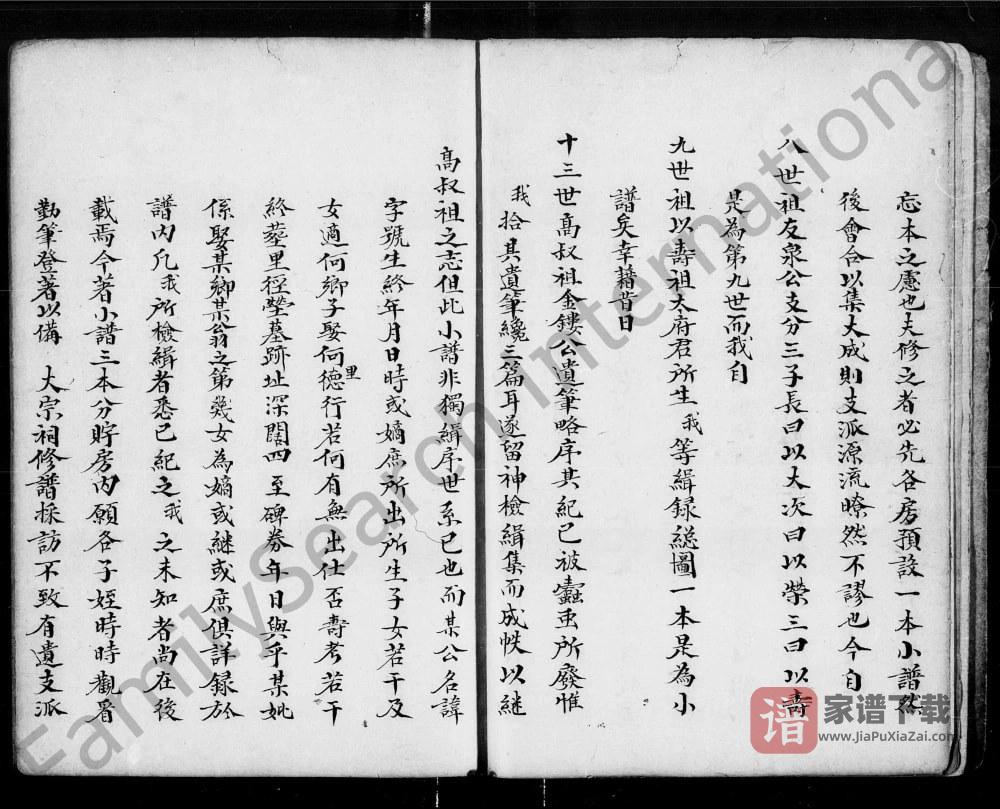 忘本之慮也夫修之者必先各房預設一本小譜然
後會合以集大成則支派源流瞭然不謬也今自
八世祖友泉公支分三子長曰以大次曰以榮三曰以壽
是為第九世而我自
九世祖以壽祖太府君所生我等緝録総圖一本是為小
譜矣幸藉昔日
十三世髙叔祖金鏤公遺筆略序其紀已被蠹虫所廢惟
我拾其遺筆纔三篇耳遂留神檢緝集而成帙以継
髙叔祖之志但此小譜非獨緝序世系已也而某公名諱
字號生終年月日時或嫡庶所出所生子女若干及
女適何鄉子娶何里德行若何有無出仕否壽考若干
終塟里徑塋墓跡址深闊四至碑券年日與乎某妣
係娶某鄉某翁之第幾女為嫡或継或庶俱詳録於
譜内凡我所檢緝者悉已紀之我之未知者尚在後
載焉今著小譜三本分貯房内願各子姪時時觀看
勤筆登著以備 大宗祠修譜採訪不致有遺支派
FamilySearch International
譜
家谱下载
www.JiaPuXiaZai.com